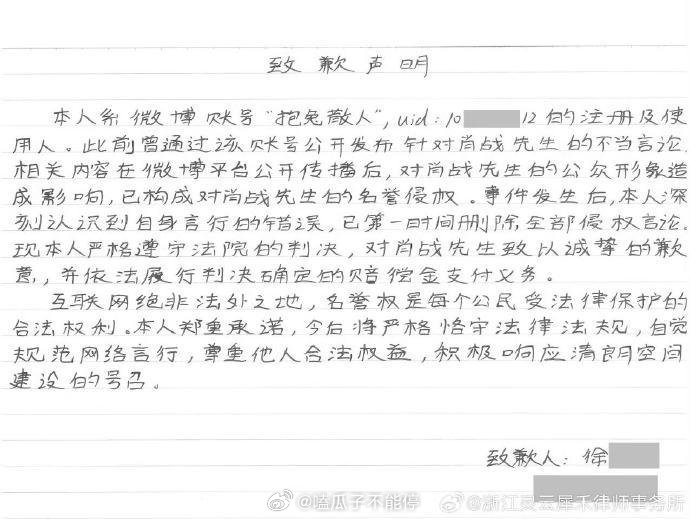 致歉声明
本人系微博账号"抱兔散人",uid:10 12的注册及使
用人。此前曾通过该账号公开发布针对肖战先生的不当言论,
相关内容在微博平台公开传播后,对肖战先生的公众形象造
成影响,已构成对肖战先生的名誉侵权。事件发生后,本人深
刻认识到自身言行的错误,已第一时间删除全部侵权言论。
现本人严格遵守法院的判决,对肖战先生致以诚挚的歉
意,并依法履行判决确定的赔偿金支付义务。
互联网络非法外之地,名誉权是每个公民受法律保护的
合法权利。本人郑重承诺,今后将严格恪守法律法规,自觉
规范网络言行,尊重他人合法权益,积极响应清朗空间
建设的号召。
致歉人:徐
@嗑瓜子不能停
@浙江灵云犀禾律师事务所